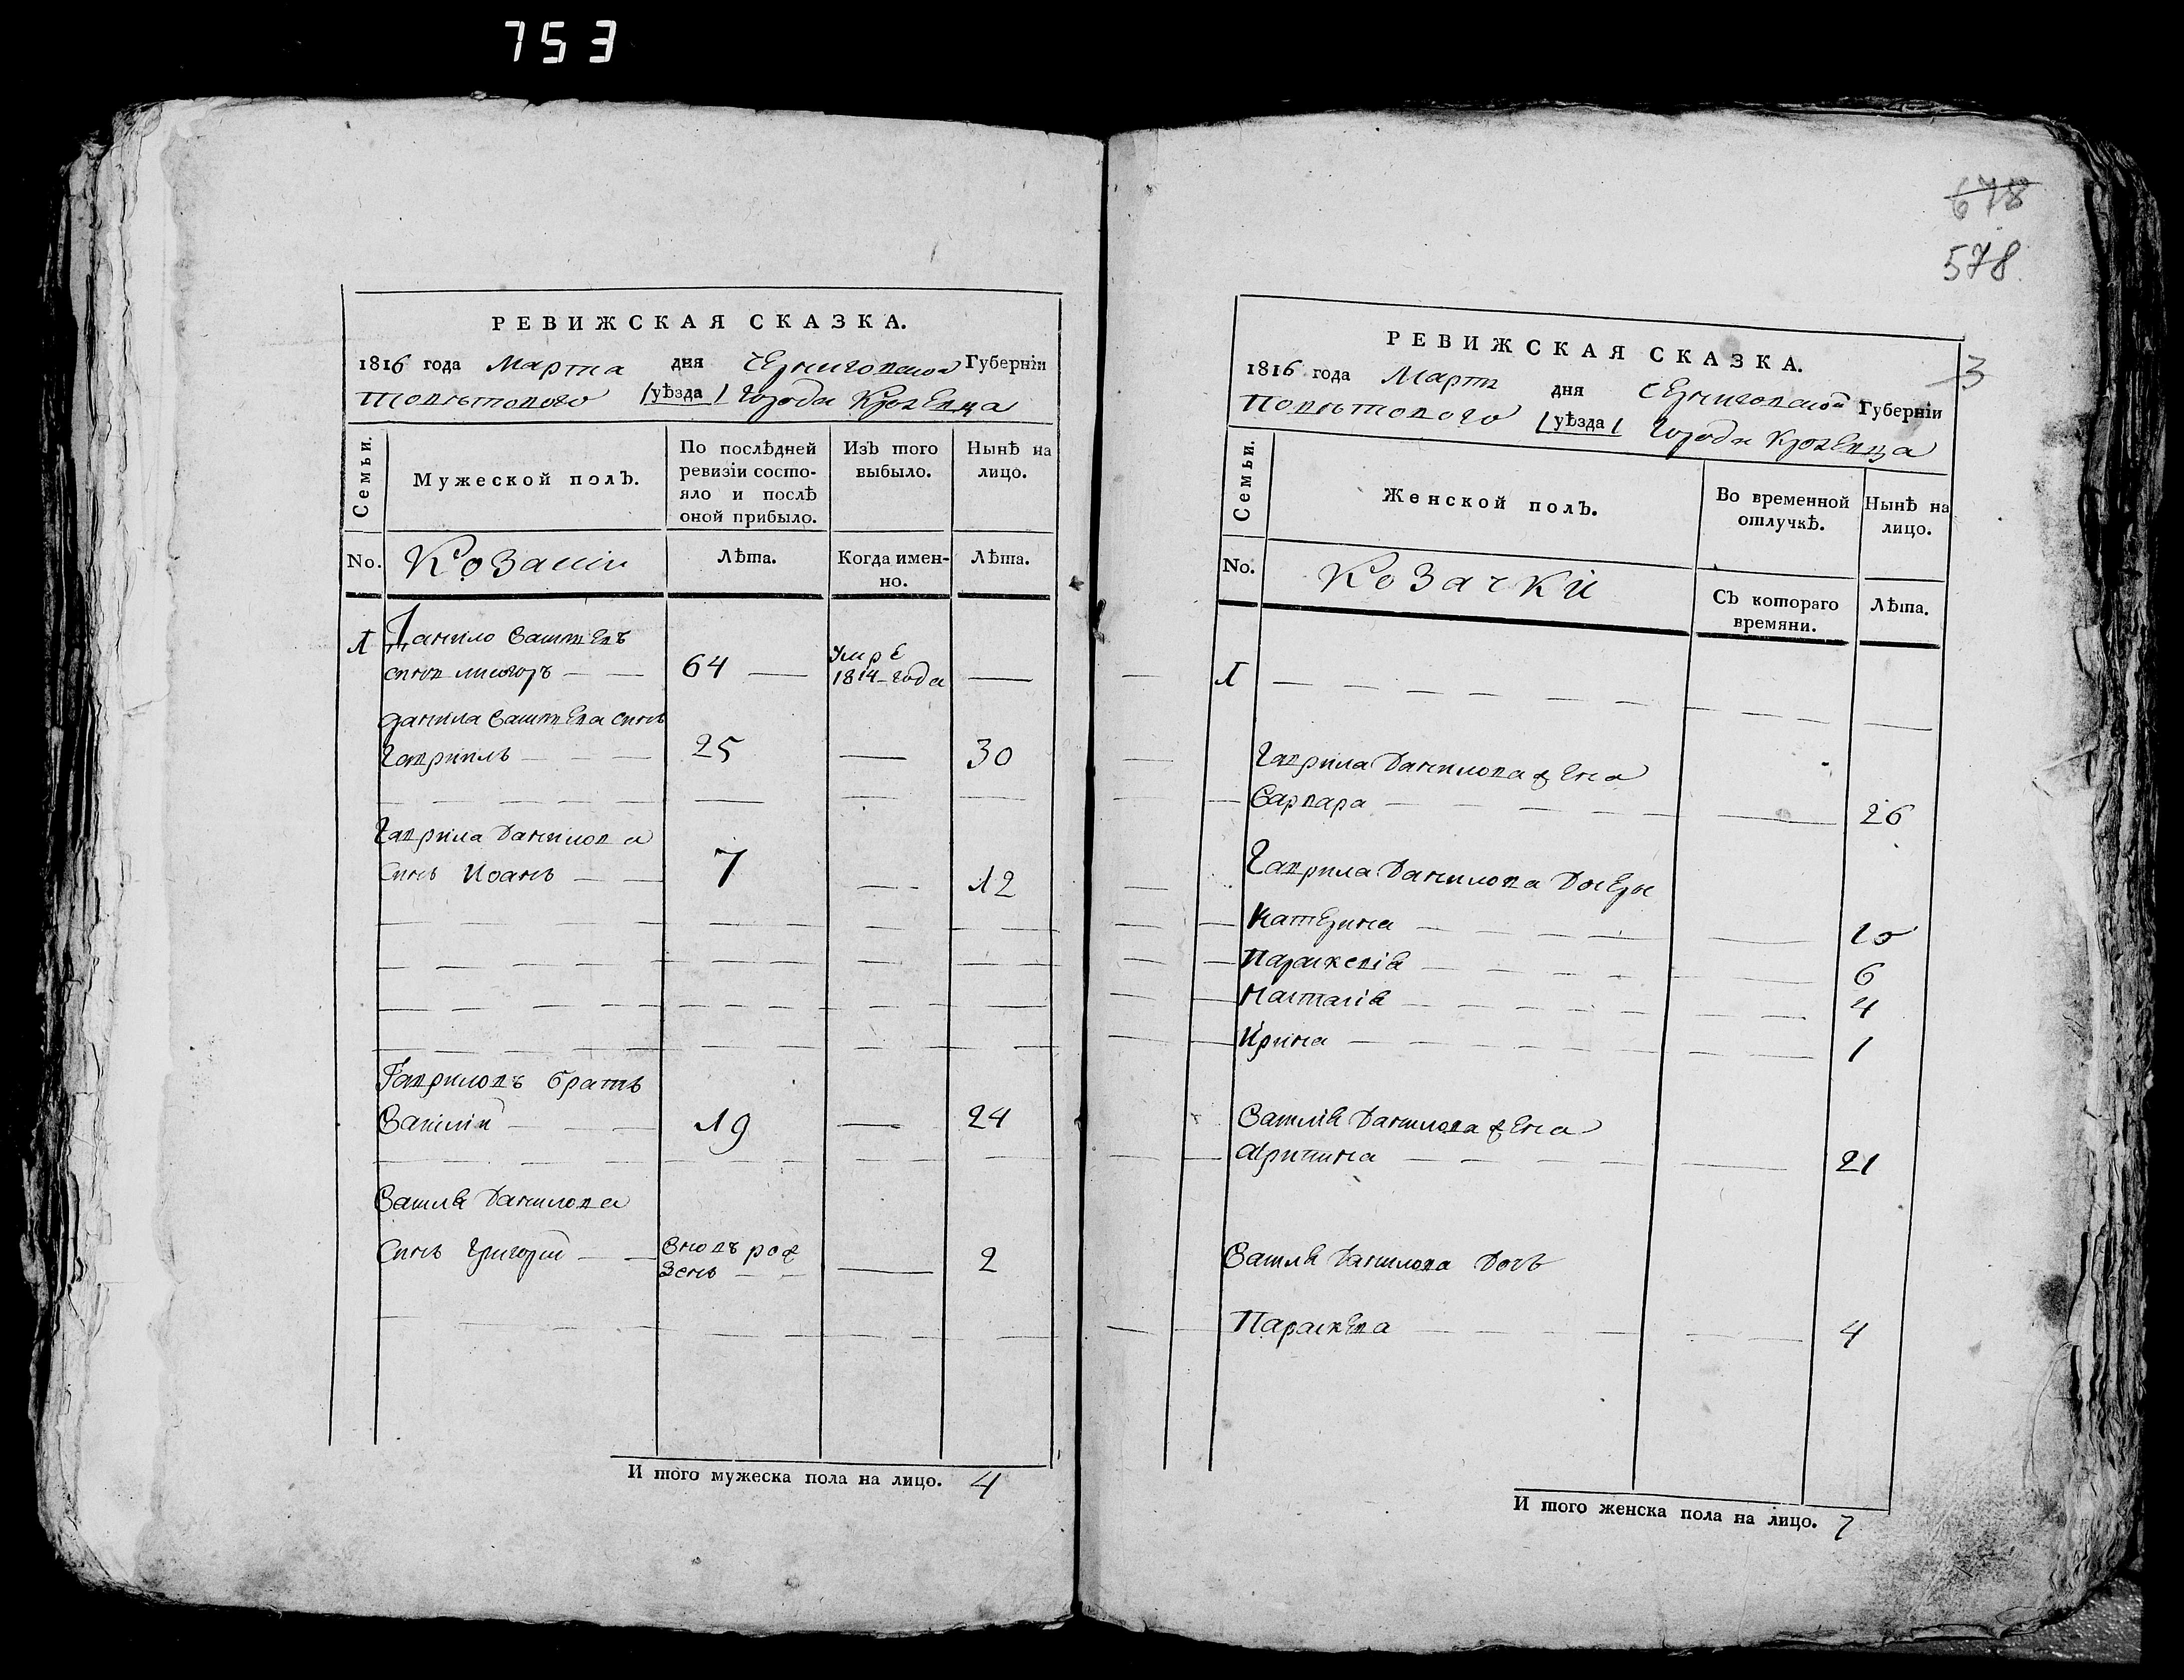 753
РЕВИЖСКАЯ СКАЗКА.
1816 года Марта дня Черниговской Губерніи
Поветового /уѣзда/ Города Кролевца
Семьи.
Мужеской полъ.
По послѣдней
ревизіи состо-
яло и послѣ
оной прибыло.
Изъ того
выбыло.
Нынѣ на
лицо.
No.
Козаки
Лѣта.
Когда имен-
но.
Лѣта.
1
Данило
сынъ
64
Умре
1814 года
Данила сынъ
Гаврилъ
25
30
Гаврила Данилова
Сынъ Иоанъ
7
12
Гавриловъ братъ
Василий
19
24
Василя Данилова
Сынъ Григорий
Вновь рож
денъ
2
И того мужеска пола на лицо. 4
678
578.
3
РЕВИЖСКАЯ СКАЗКА.
1816 года Марта дня Черниговской Губерніи
Поветового /уѣзда/ Города Кролевца
Семьи.
Женской полъ.
Во временной
отлучкѣ.
Нынѣ на
лицо.
No.
Козачки
Съ котораго
времяни.
Лѣта.
1
Гаврила Данилова жена
Варвара
26
Гаврила Данилова Дочери
Катерина
10
Параскевія
6
Наталія
4
Ирина
1
Василія Данилова жена
21
Василя Данилова Дочь
Параскева
4
И того женска пола на лицо. 7